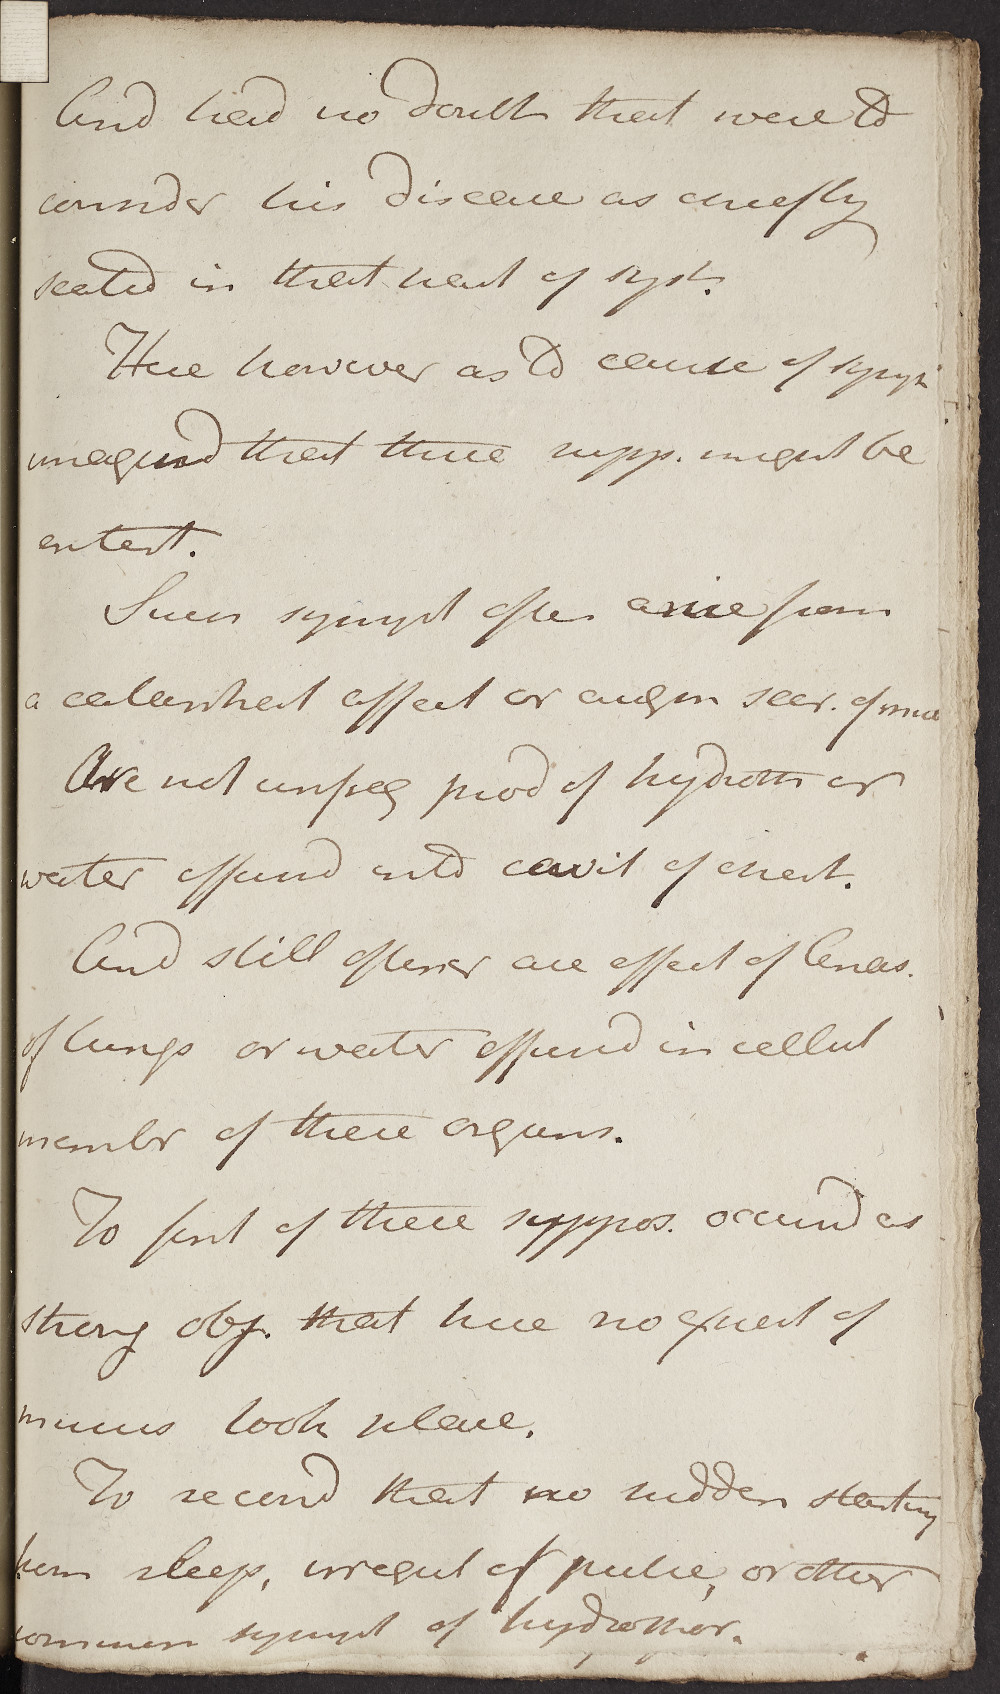 And had no doubt that were to
consider his disease as chiefly
seated in that part of syst.
Here however as to cause of sympt
imagined that three supp. might be
entert.
Such sympt often arise from
a catarrhal affect or augm secr. of muc
Are not unfreq prod of hydroth or
water effused into cavit of chest.
And still oftener are effect of Anas.
of lungs or water effused in cellul
membr of these organs.
To first of these suppos. occurred as
strong obj. that here no expect of
mucus took place.
To second that no sudden starting
from sleep, irregul of pulse, or other
common sympt of hydrothor.